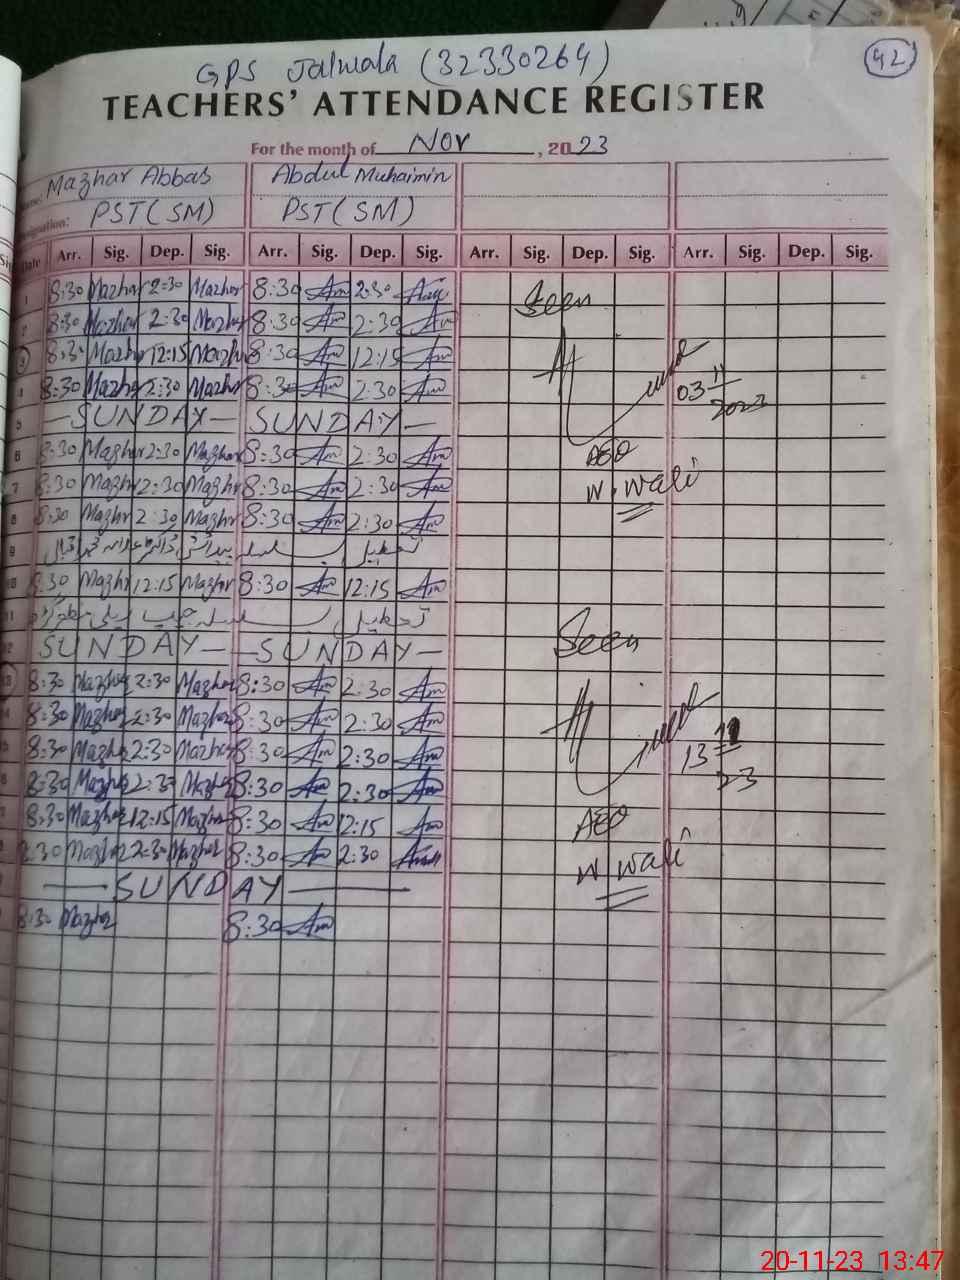 42
GPS Jalwala (32330264)
TEACHERS' ATTENDANCE REGISTER
For the month of Nov, 2023
Mazhar Abbas Abdul Muhaimin
PST(SM) PST(SM)
Date Arr. Sig. Dep. Sig. Arr. Sig. Dep. Sig. Arr. Sig. Dep. Sig. Arr. Sig. Dep. Sig.
1 8:30 Mazhar 2:30 Mazhar 8:30 Am 2:30 Am
Seen
2 8:30 Mazhar 2:30 Mazhar 8:30 Am 2:30 Am
3 8:30 Mazhar 12:15 Mazhar 8:30 Am 12:15 Am
4 8:30 Mazhar 2:30 Mazhar 8:30 Am 2:30 Am
03 11 2023
5 —SUNDAY— SUNDAY—
6 8:30 Mazhar 2:30 Mazhar 8:30 Am 2:30 Am
AEO
7 8:30 Mazhar 2:30 Mazhar 8:30 Am 2:30 Am
W.wali
8 8:30 Mazhar 2:30 Mazhar 8:30 Am 2:30 Am
9 تعطیل بسلسلہ پیدائش ڈاکٹر علامہ محمد اقبال
10 8:30 Mazhar 12:15 Mazhar 8:30 Am 12:15 Am
11 تعطیل بسلسلہ
12 SUNDAY— —SUNDAY—
Seen
13 8:30 Mazhar 2:30 Mazhar 8:30 Am 2:30 Am
14 8:30 Mazhar 2:30 Mazhar 8:30 Am 2:30 Am
15 8:30 Mazhar 2:30 Mazhar 8:30 Am 2:30 Am
13 11 23
8:30 Mazhar 2:30 Mazhar 8:30 Am 2:30 Am
8:30 Mazhar 12:15 Mazhar 8:30 Am 12:15 Am
AEO
8:30 Mazhar 2:30 Mazhar 8:30 Am 2:30 Am
W wali
—SUNDAY—
8:30 Mazhar 8:30 Am
20-11-23 13:47